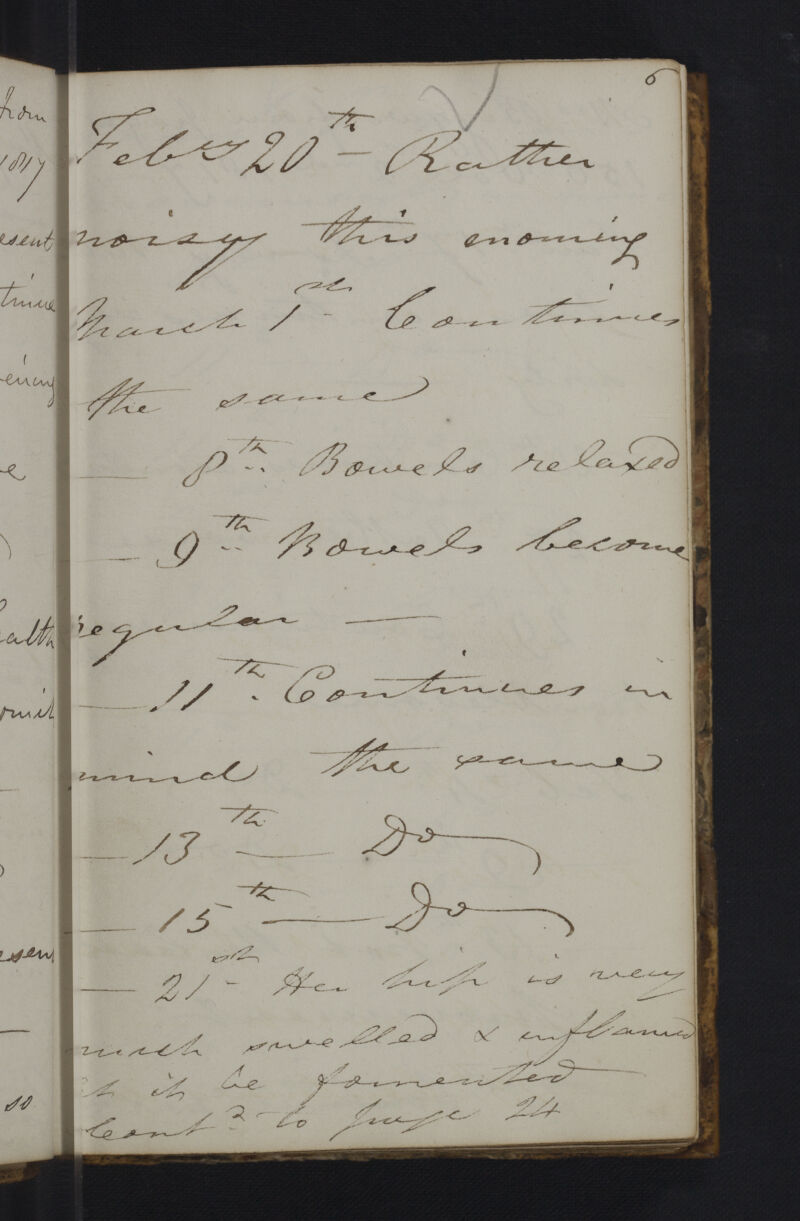 from
1817
esent
tinue
vening
ealth
omit
esen
so
6
Febry 20th – Rather
noisy this morning
March 1st – Continues
the same
— 8th .. Bowels relaxed
— 9th .. Bowels become
regular —
— 11th . Continues in
mind the same
— 13th — Do
— 15th — Do
— 21st – Her hip is very
much swelled & inflamed
it be fomented
Contd to page 24